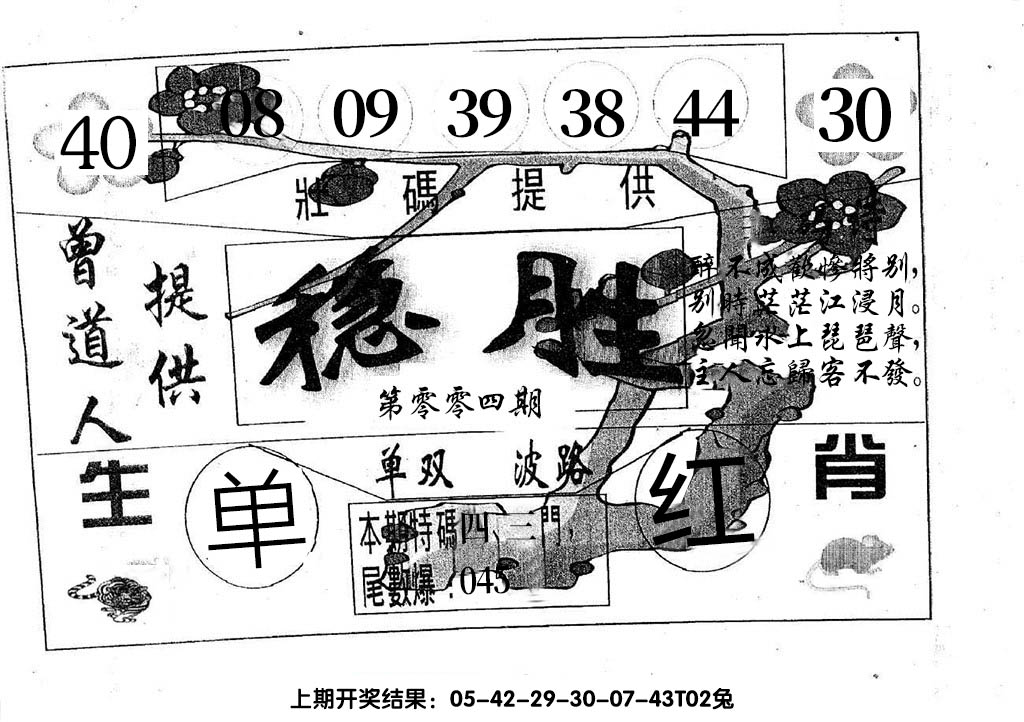 40 08 09 39 38 44 30
壯碼提供
曾道人
提供
稳胜
第零零四期
特
醉不成歡慘將别，
别時茫茫江浸月。
忽聞水上琵琶聲，
主人忘歸客不發。
单双 波路
生肖
单
红
本期特碼四、三門，
尾數爆：045
上期开奖结果：05-42-29-30-07-43T02兔